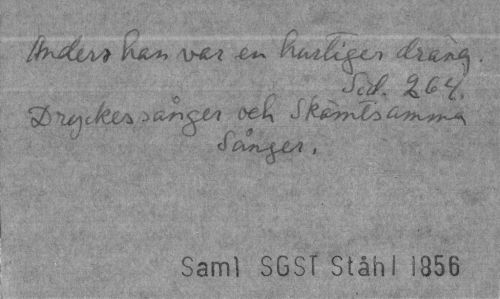 Anders han var en hurtiger dräng.
Sid. 264.
Dryckessånger och Skämtsamma
Sånger.
Saml SGST Ståhl 1856